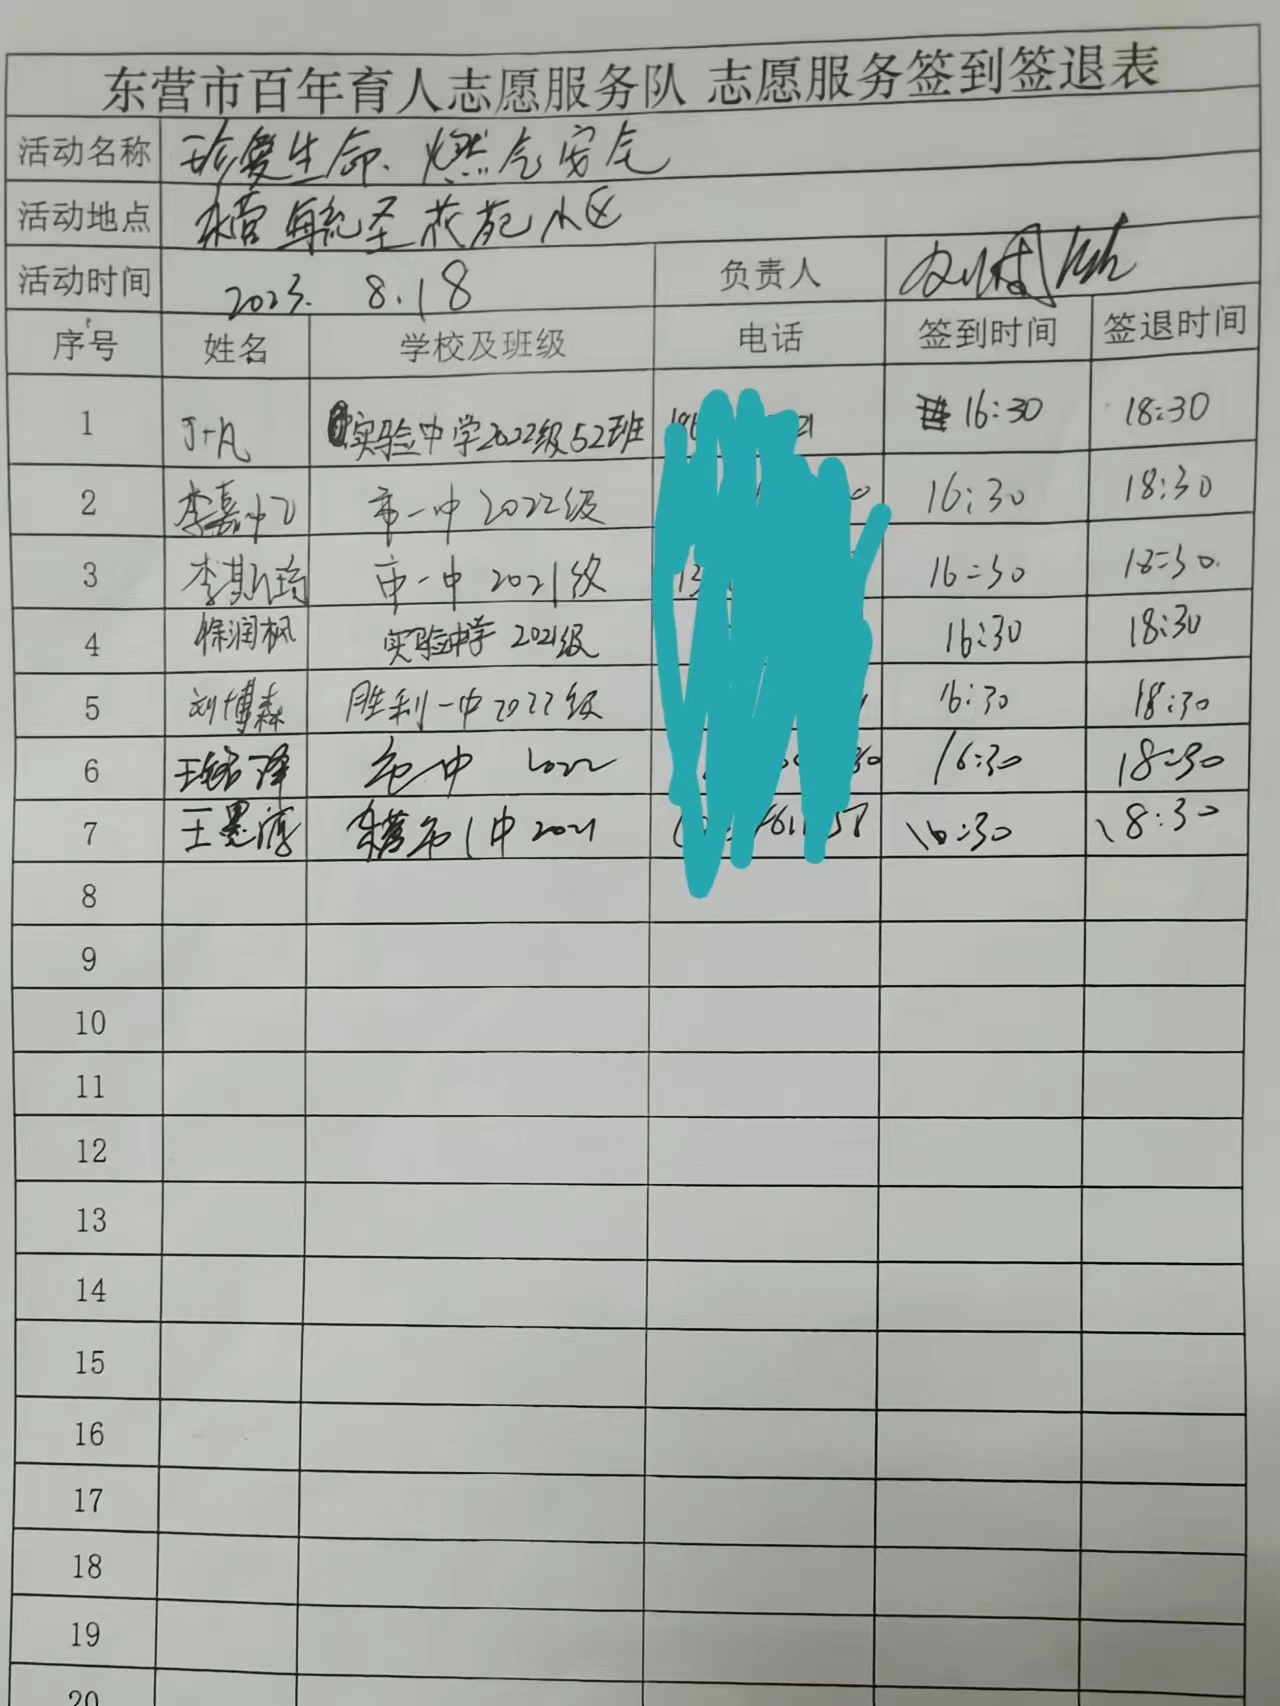 东营市百年育人志愿服务队 志愿服务签到签退表
活动名称 珍爱生命.燃气安全
活动地点 东营 小区
活动时间 2023. 8.18 负责人
序号 姓名 学校及班级 电话 签到时间 签退时间
1 实验中学2022级52班 16:30 18:30
2 李嘉 市一中 2022级 16:30 18:30
3 李 市一中 2021级 16:30 18:30.
4 徐润枫 实验中学 2021级 16:30 18:30
5 刘博森 胜利一中2022级 16:30 18:30
6 王 市一中 2022 16:30 18:30
7 王 东营市1中2021 16:30 18:30
8
9
10
11
12
13
14
15
16
17
18
19
20